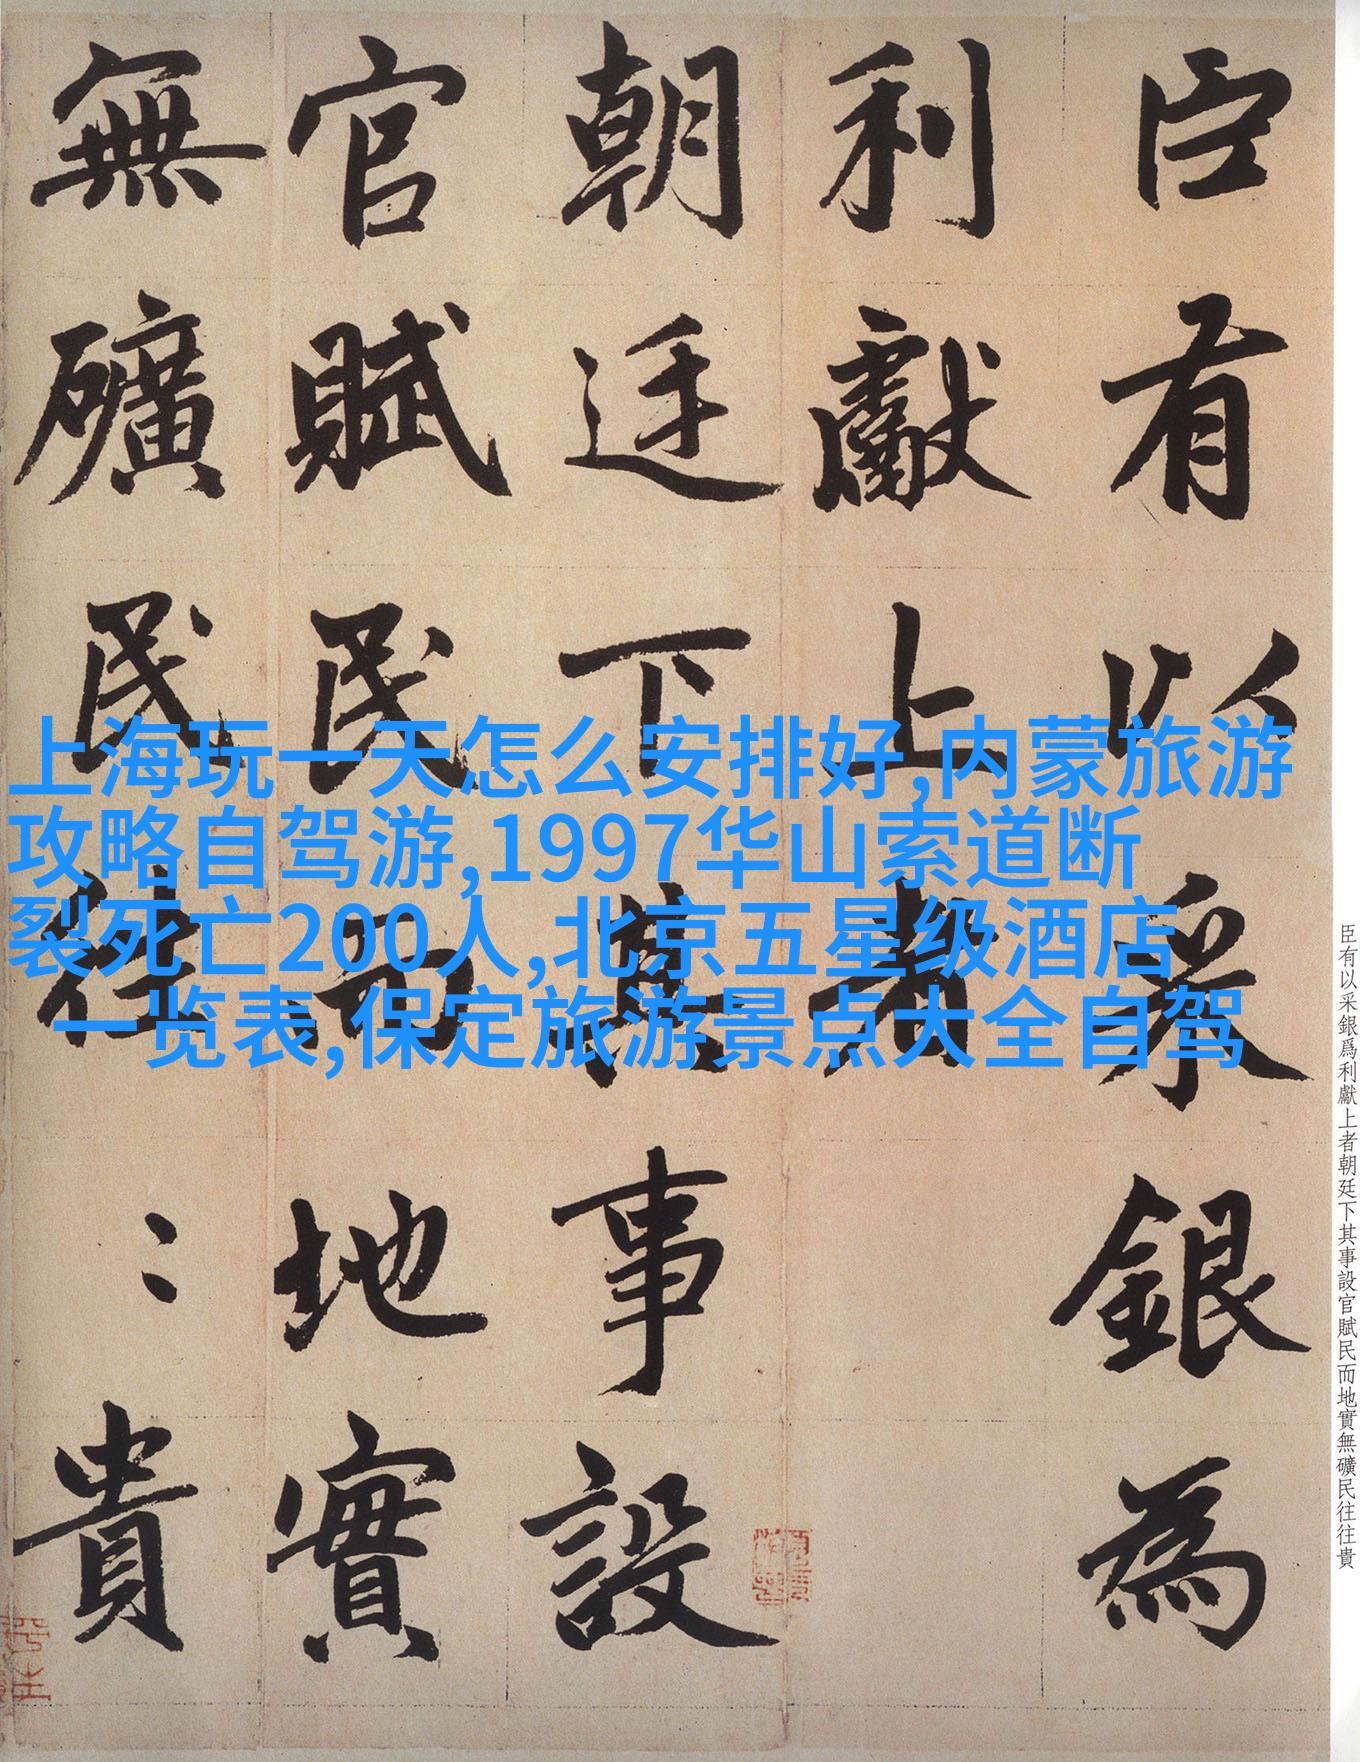 臣有以采銀為
利獻上者
朝廷下其事設
官賦民而地實
無礦民往〻貴
上海玩一天怎么安排好,内蒙旅游
攻略自驾游,1997华山索道断
裂死亡200人,北京五星级酒店
一览表,保定旅游景点大全自驾
臣有以采銀爲利獻上者朝廷下其事設官賦民而地實無礦民往往貴